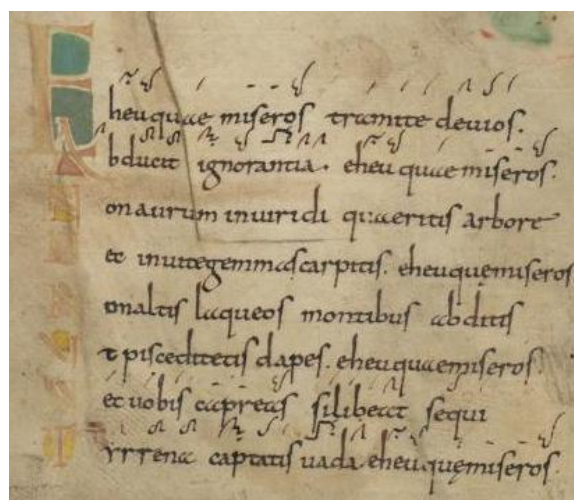 Eheu quae miseros tramite deuios.
Abducit ignorantia. eheu quae miseros.
Non aurum in uiridi quaeritis arbore
Nec inuite gemmas carpitis. eheu quę miseros
Non altis laqueos montibus abditis
Vt pisce ditetis dapes. eheu quae miseros
Nec uobis capreas si libeat sequi
Tyrrena captatis uada. eheu quę miseros.